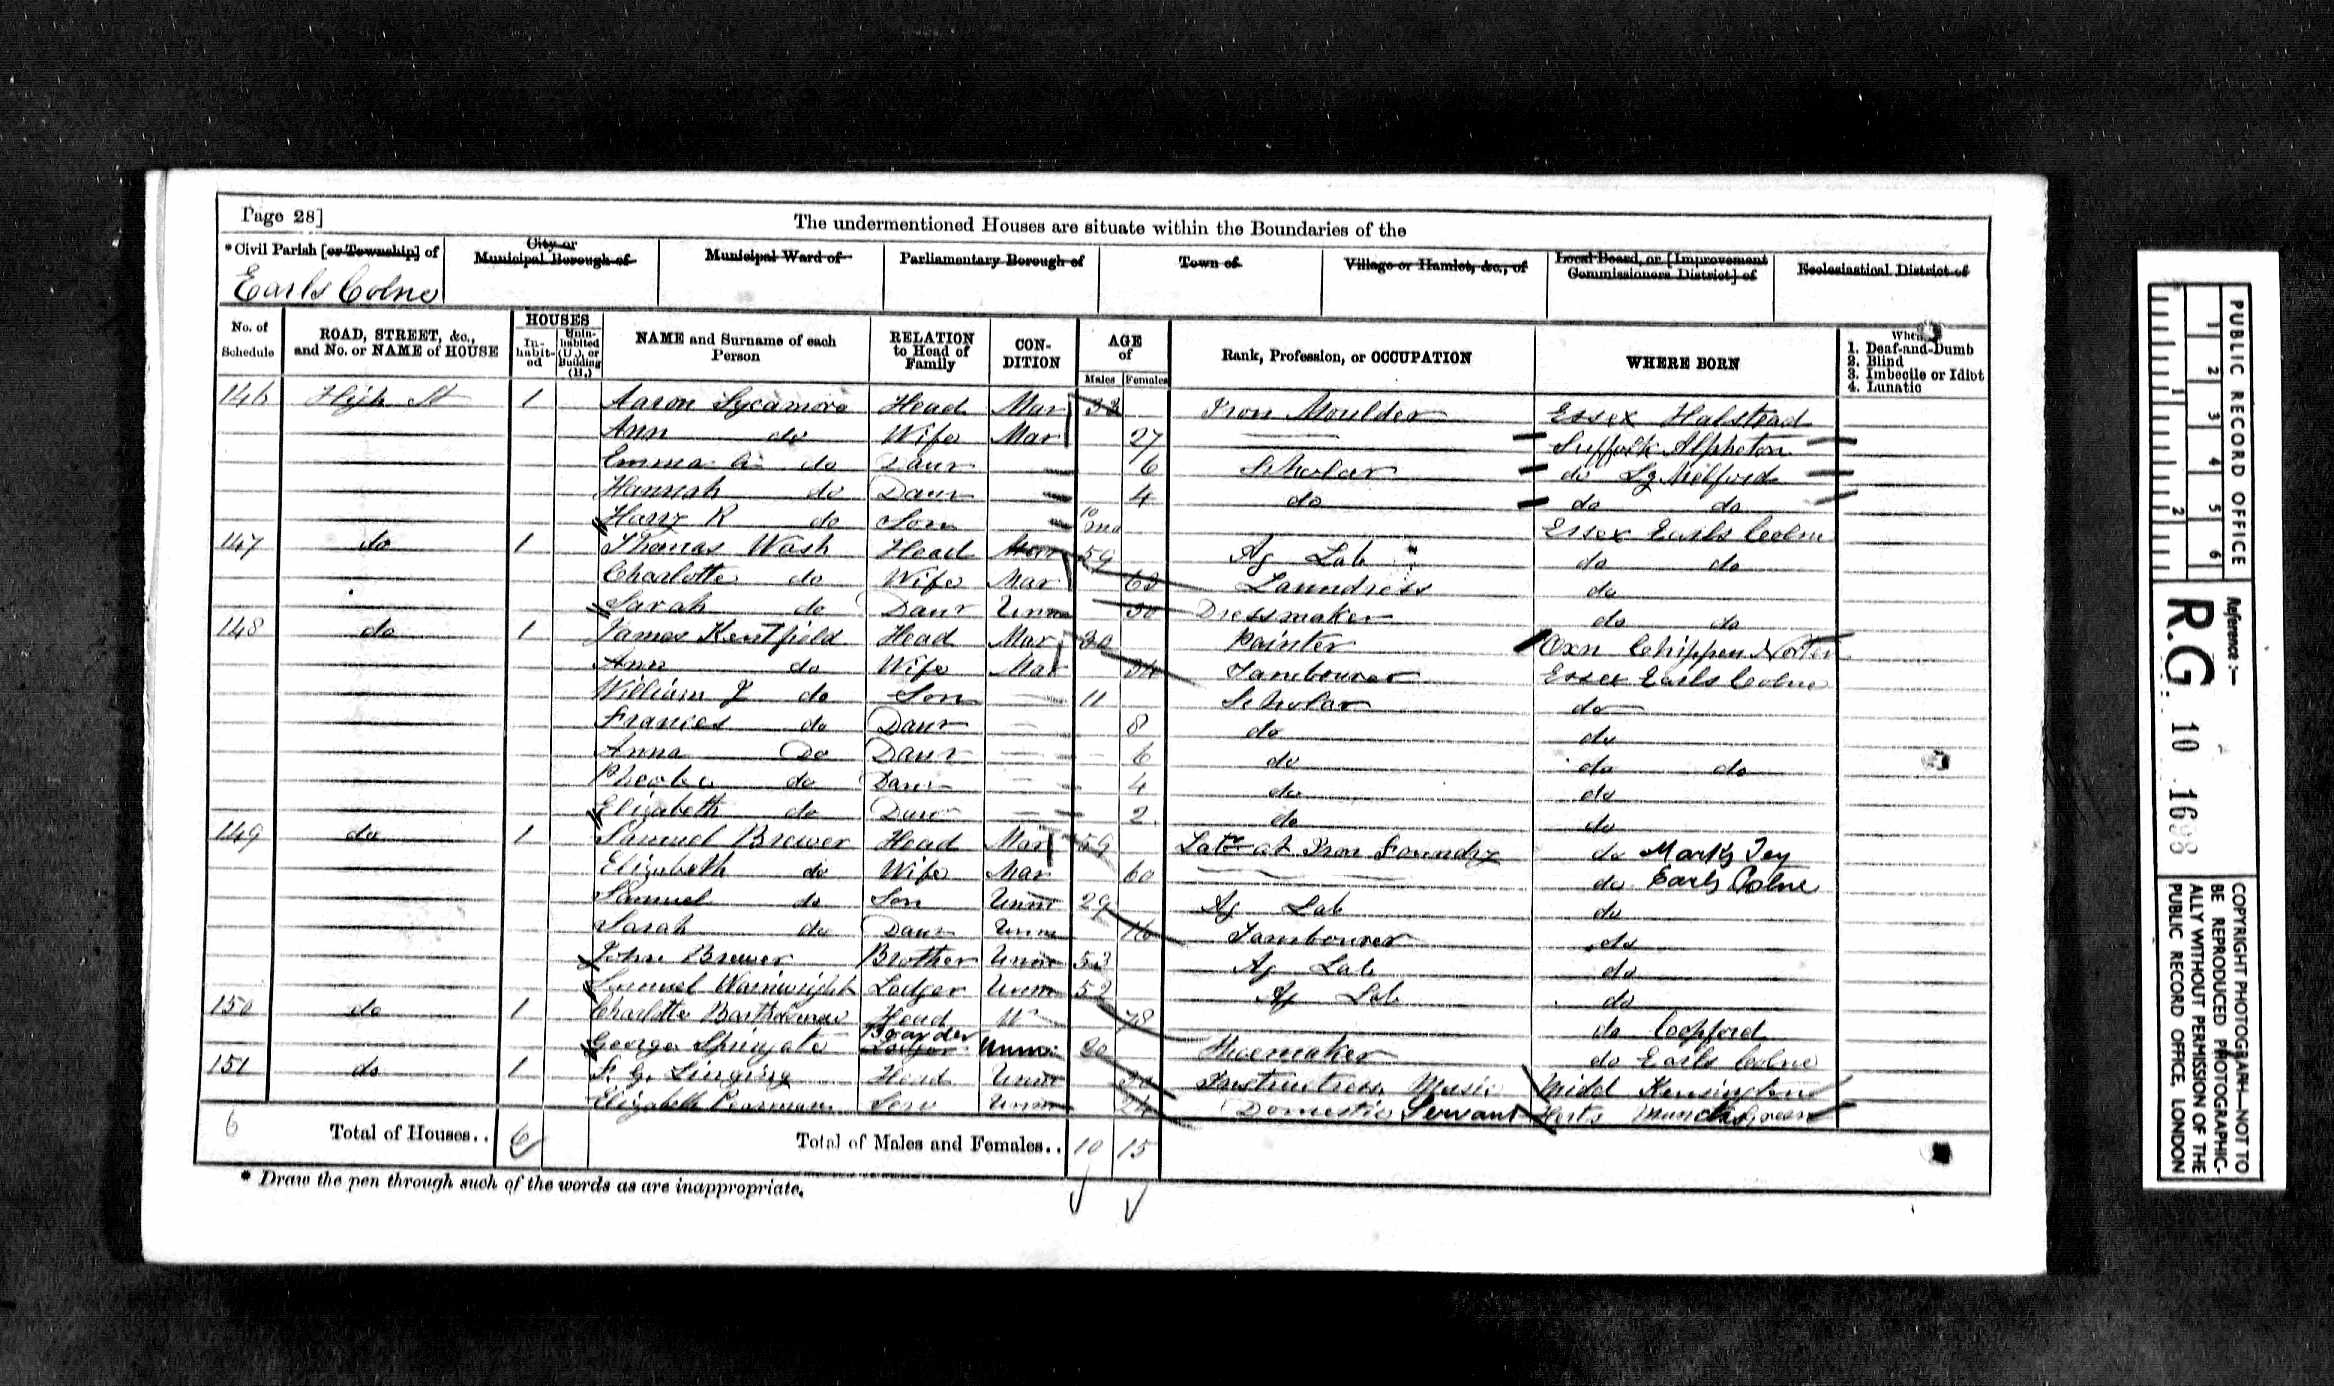 Page 28]
The undermentioned Houses are situate within the Boundaries of the
*Civil Parish [or Township] of
City or Municipal Borough of
Municipal Ward of
Parliamentary Borough of
Town of
Village or Hamlet, &c., of
Local Board, or [Improvement Commissioners District] of
Ecclesiastical District of
Earls Colne
No. of Schedule
ROAD, STREET, &c., and No. or NAME of HOUSE
HOUSES
In-habit-ed
Unin-habited (U.), or Building (B.)
NAME and Surname of each Person
RELATION to Head of Family
CON-DITION
AGE of
Males Females
Rank, Profession, or OCCUPATION
WHERE BORN
1. Deaf-and-Dumb
2. Blind
3. Imbecile or Idiot
4. Lunatic
146 High St 1 Aaron Sycamore Head Mar 33 Iron Moulder Essex Halstead
Ann do Wife Mar 27 Suffolk Alpheton
Emma do Daur 6 Scholar do Lg Melford
Hannah do Daur 4 do do do
Harry R do Son 10 mo Essex Earls Colne
147 do 1 Thomas Wash Head Mar 59 Ag Lab do do
Charlotte do Wife Mar 63 Laundress do
Sarah do Daur Unm 30 Dressmaker do do
148 do 1 James Kentfield Head Mar 30 Painter Oxn Chippen Norton
Ann do Wife Mar Tambourer Essex Earls Colne
William J do Son 11 Scholar do
Frances do Daur 8 do do
Anna Do Daur 6 do do do
Pheobe do Daur 4 do do
Elizabeth do Daur 2 do do
149 do 1 Samuel Brewer Head Mar 59 Labr at Iron Foundry do Marks Tey
Elizabeth do Wife Mar 60 do Earls Colne
Samuel do Son Unm 29 Ag Lab do
Sarah do Daur Unm 16 Tambourer do
John Brewer Brother Unm 53 Ag Lab do
Samuel Wainwright Lodger Unm 52 Ag Lab do
150 do 1 Charlotte Bartholomew Head W 78 do Copford
George Springate Boarder Lodger Unm 20 Shoemaker do Earls Colne
151 do 1 F. G. Head Unm 30 Instructress Music Midd Kensington
Elizabeth Pearman Serv Unm 24 Domestic Servant Herts Green
6 Total of Houses.. 6 Total of Males and Females.. 10 15
* Draw the pen through such of the words as are inappropriate.
PUBLIC RECORD OFFICE
1 2 3 4 5 6
1 2
Reference:-
R.G. 10 1698
COPYRIGHT PHOTOGRAPH—NOT TO
BE REPRODUCED PHOTOGRAPHIC-
ALLY WITHOUT PERMISSION OF THE
PUBLIC RECORD OFFICE, LONDON